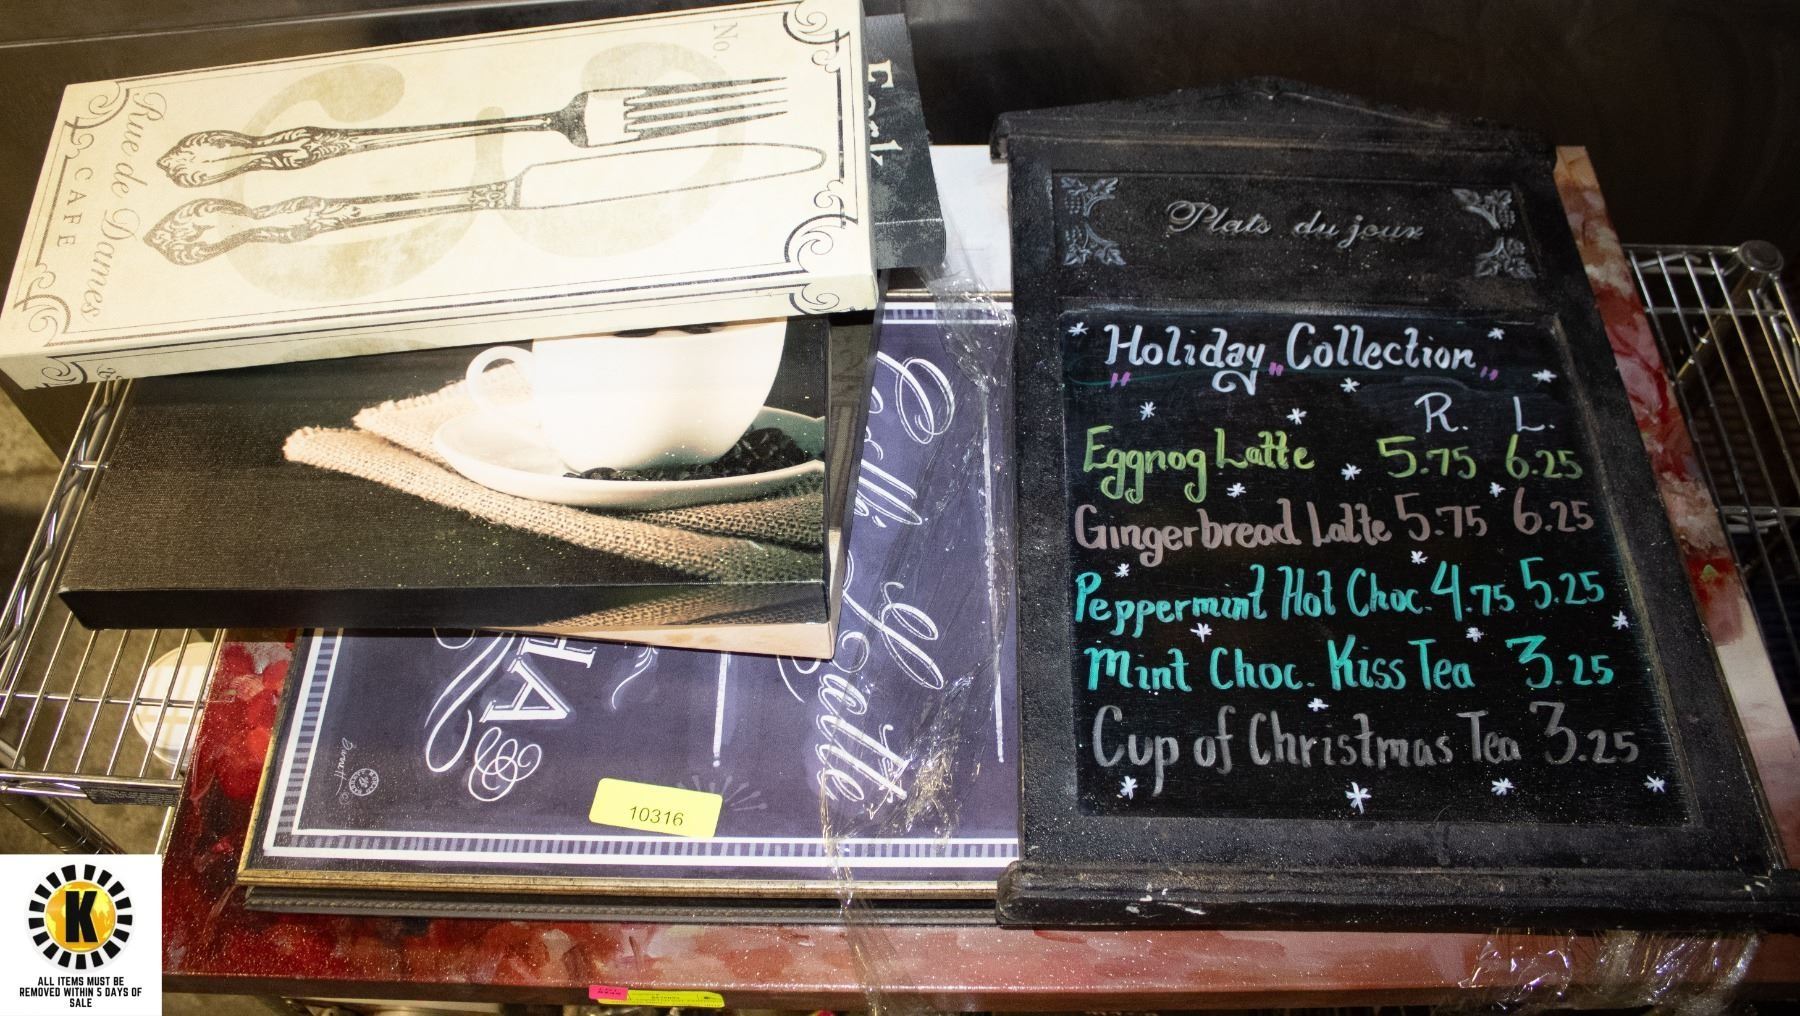 No.
Rue de Dames
CAFE
Fork
Caffé Latte
HA
Plats du jour
"Holiday" Collection"
R. L.
Eggnog Latte 5.75 6.25
Gingerbread Latte 5.75 6.25
Peppermint Hot Choc. 4.75 5.25
Mint Choc. Kiss Tea 3.25
Cup of Christmas Tea 3.25
10316
K
ALL ITEMS MUST BE
REMOVED WITHIN 5 DAYS OF
SALE